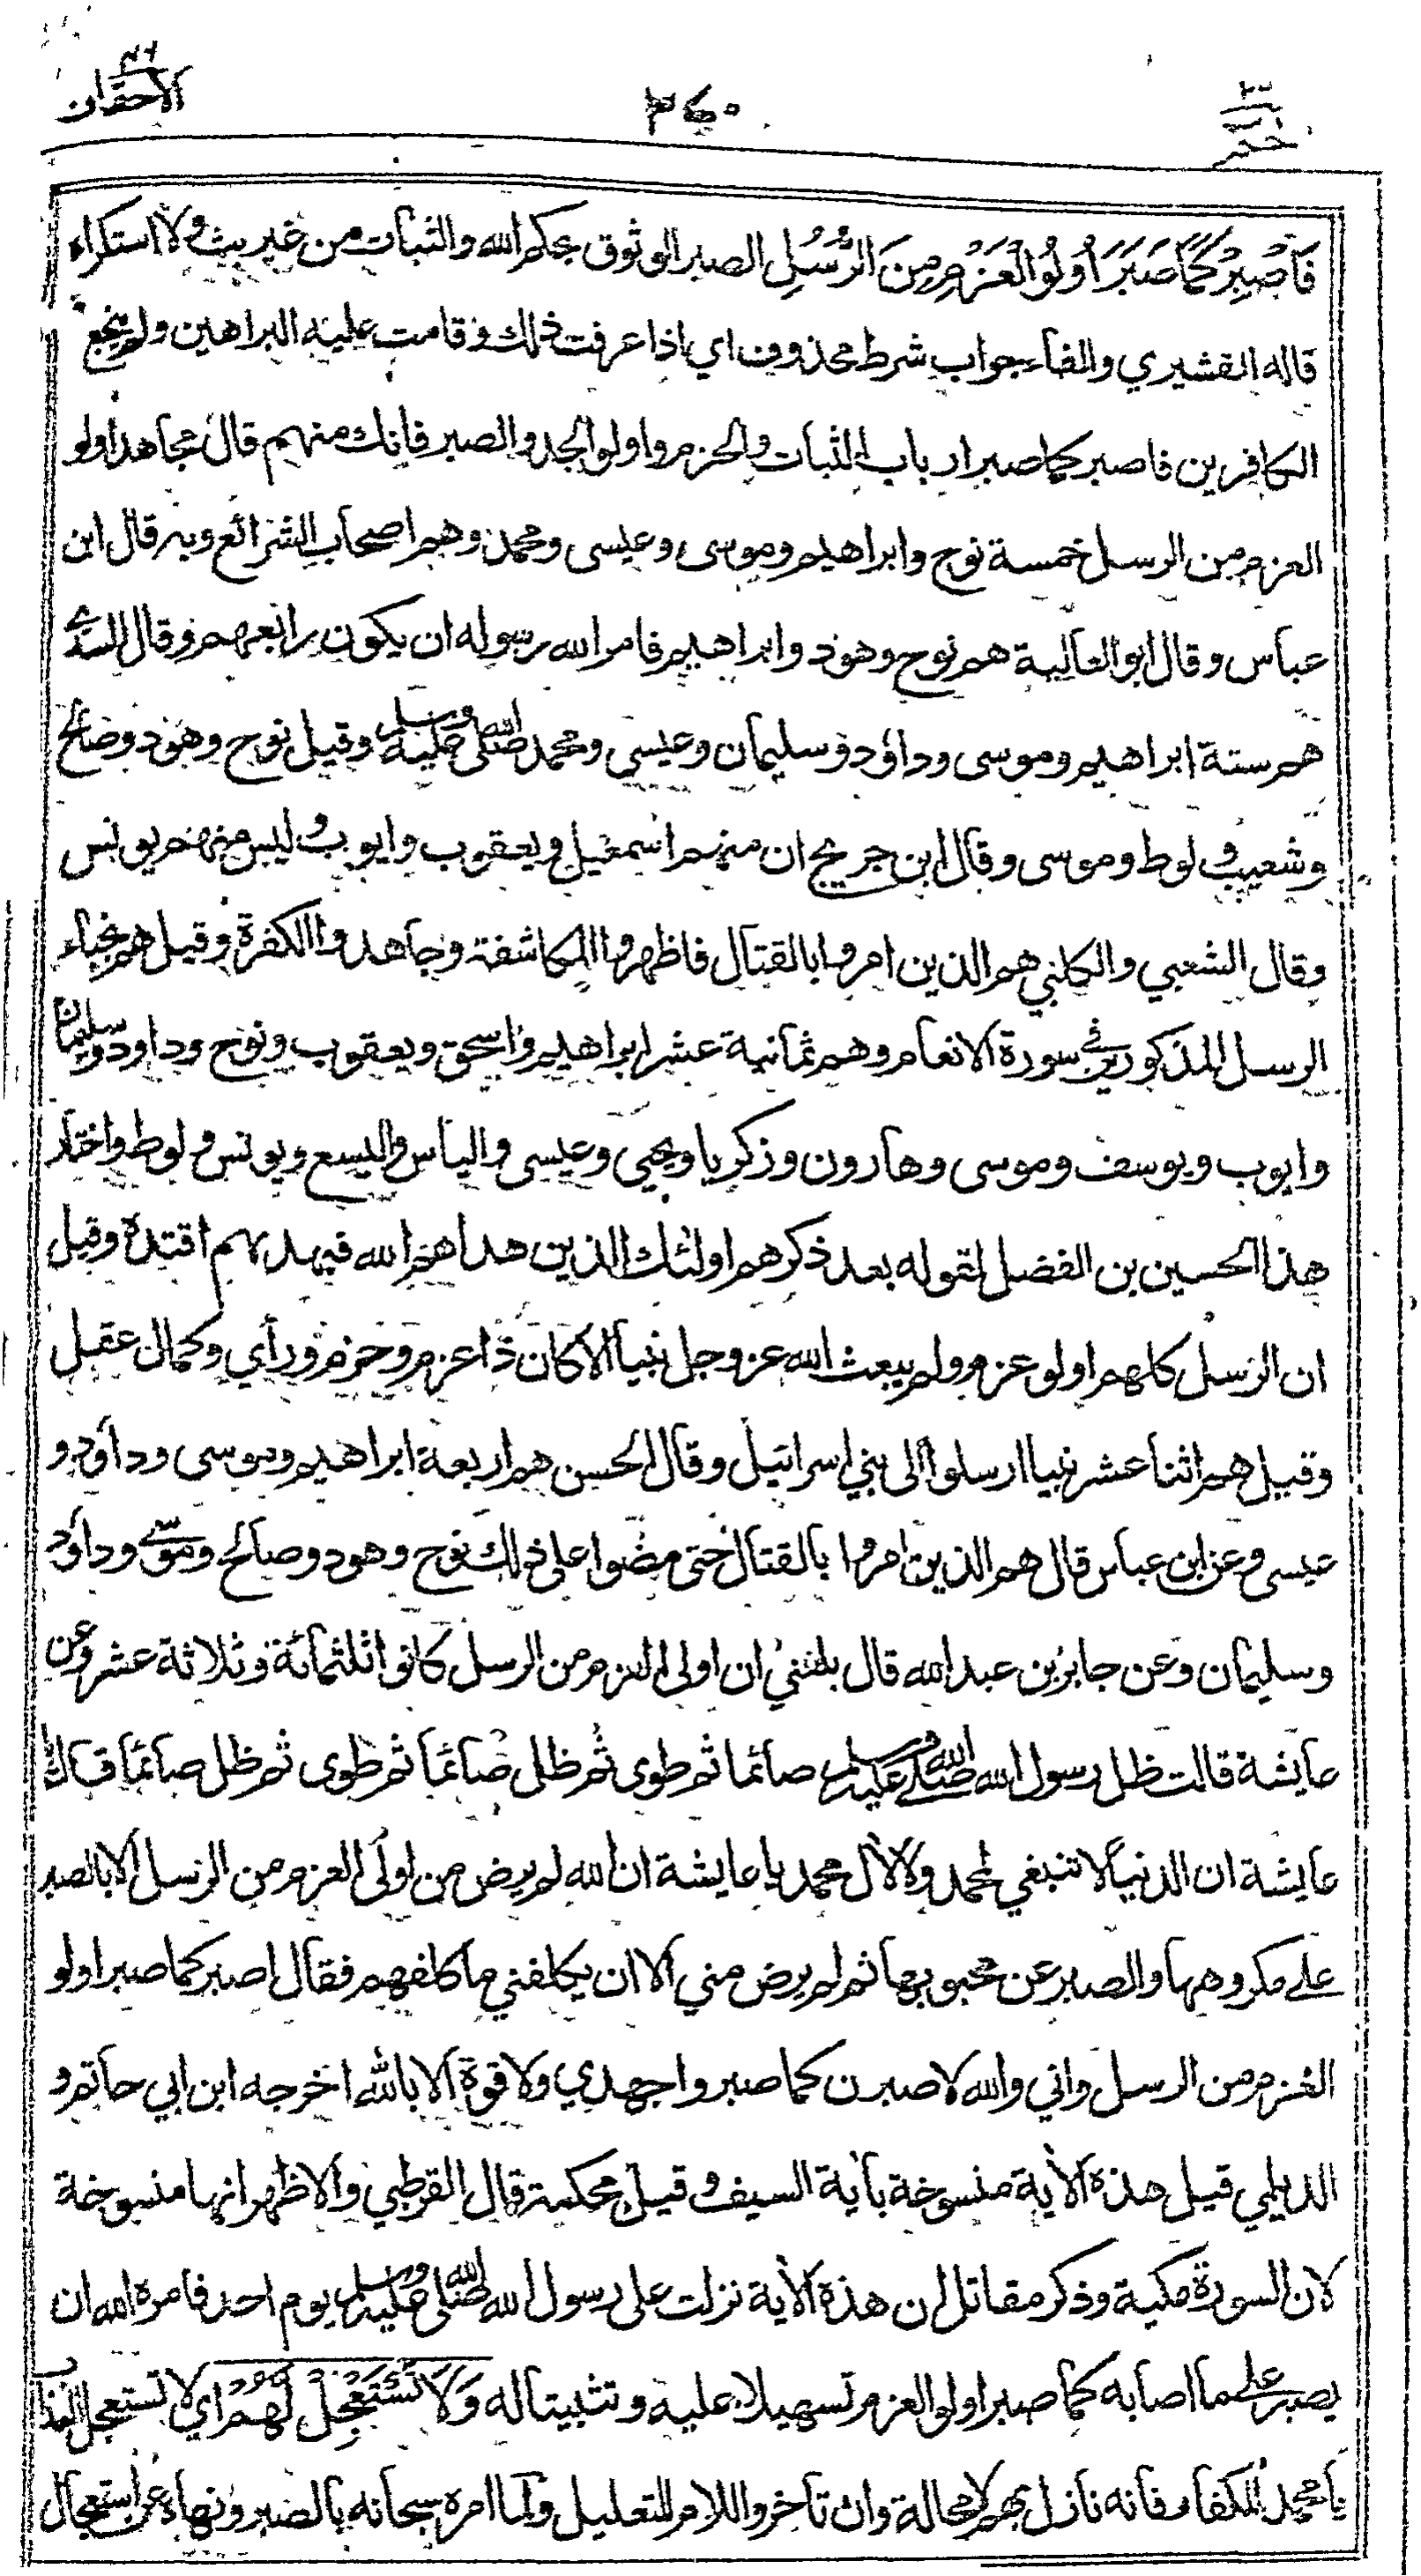 حم ٢٦
٣٤٠
الاحقاف ٤٦
فَاصْبِرْ كَمَا صَبَرَ اُولُو الْعَزْمِ مِنَ الرُّسُلِ الصبر الوثوق بحكم الله والثبات من غير بث ولا استكراه
قاله القشيري والفاء جواب شرط محذوف اي اذا عرفت ذلك وقامت عليه البراهين ولم ينجع
الكافرين فاصبر كما صبر ارباب الثبات والحزم واولو الجد والصبر فانك منهم قال مجاهد اولو
العزم من الرسل خمسة نوح وابراهيم وموسى وعيسى ومحمد وهم اصحاب الشرائع وبه قال ابن
عباس وقال ابو العالية هم نوح وهود وابراهيم فامر الله رسوله ان يكون رابعهم وقال السدي
هم ستة ابراهيم وموسى وداؤد وسليمان وعيسى ومحمد صلى الله عليه وسلم وقيل نوح وهود وصالح
وشعيب ولوط وموسى وقال ابن جريج ان منهم اسمعيل ويعقوب وايوب وليس منهم يونس
وقال الشعبي والكلبي هم الذين امروا بالقتال فاظهروا المكاشفة وجاهدوا الكفرة وقيل هم نجباء
الرسل المذكورين في سورة الانعام وهم ثمانية عشر ابراهيم واسحق ويعقوب ونوح وداود وسليمان
وايوب ويوسف وموسى وهارون وزكريا ويحيى وعيسى والياس واليسع ويونس ولوط واختار
هذا الحسين بن الفضل لقوله بعد ذكرهم اولئك الذين هداهم الله فبهداهم اقتده وقيل
ان الرسل كلهم اولو عزم ولم يبعث الله عز وجل نبيا الا كان ذا عزم وحزم ورأي وكمال عقل
وقيل هم اثنا عشر نبيا ارسلوا الى بني اسرائيل وقال الحسن هم اربعة ابراهيم وموسى وداؤد و
عيسى وعن ابن عباس قال هم الذين امروا بالقتال حتى مضوا على ذلك نوح وهود وصالح وموسى وداؤد
وسليمان وعن جابر بن عبد الله قال بلغني ان اولى العزم من الرسل كانوا ثلثمائة وثلاثة عشر وعن
عايشة قالت ظل رسول الله صلى الله عليه وسلم صائما ثم طوى ثم ظل صائما ثم طوى ثم ظل صائما قال يا
عايشة ان الدنيا لا تنبغي لمحمد ولا لآل محمد يا عايشة ان الله لم يرض من اولى العزم من الرسل الا بالصبر
على مكروهها والصبر عن محبوبها ثم لم يرض مني الا ان يكلفني ما كلفهم فقال اصبر كما صبر اولو
العزم من الرسل واني والله لاصبرن كما صبروا جهدي ولا قوة الا بالله اخرجه ابن ابي حاتم و
الديلمي قيل هذه الآية منسوخة بآية السيف وقيل محكمة قال القرطبي والاظهر انها منسوخة
لان السورة مكية وذكر مقاتل ان هذه الآية نزلت على رسول الله صلى الله عليه وسلم يوم احد فامره الله ان
يصبر على ما اصابه كما صبر اولو العزم تسهيلا عليه وتثبيتا له وَلَا تَسْتَعْجِلْ لَّهُمْ اي لا تستعجل العذاب
يا محمد للكفار فانه نازل بهم لا محالة وان تأخر واللام للتعليل ولما امره سبحانه بالصبر ونهاه عن استعجال